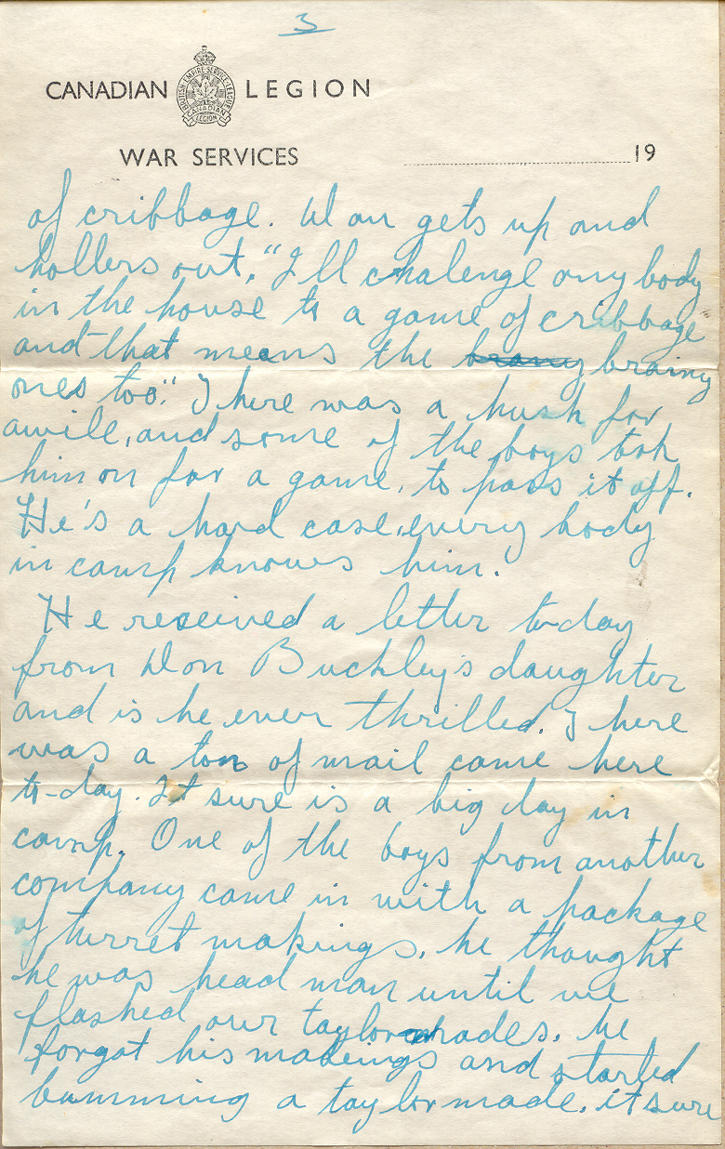 3
CANADIAN LEGION
WAR SERVICES 19
of cribbage. Wan gets up and
hollers out, "I'll chalenge any body
in the house to a game of cribbage
and that means the brainy
ones too." There was a hush for
awile, and some of the boys took
him on for a game, to pass it off.
He's a hard case, every body
in camp knows him.
He received a letter to-day
from Don Buckley's daughter
and is he ever thrilled. There
was a ton of mail came here
to-day. It sure is a big day in
camp. One of the boys from another
company came in with a package
of turret makings, he thought
he was head man until we
flashed our taylormades. he
forgot his makings and started
bumming a taylormade. it sure